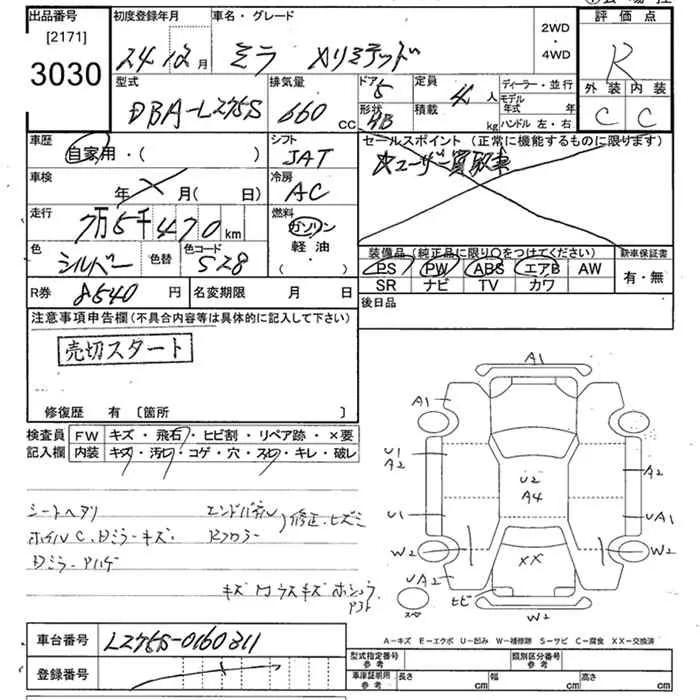 出品番号 初度登録年月 車名・グレード 2WD・4WD 評価点
[2171]
3030
24 12月 ミラ メリミテッド R
型式 排気量 ドア 5 定員 4人 ディーラー・並行 外装 内装
DBA-L275S 660cc 形状 HB 積載 kg モデル年式 年 C C
ハンドル 左・右
車歴 シフト セールスポイント (正常に機能するものに限ります)
自家用・( ) JAT ☆ユーザー買取車
車検 冷房
年 月( 日) AC
走行 7万5千470km 燃料 ガソリン
軽油・( )
色 シルバー 色替 色コード S28
装備品(純品に限り○をつけてください) 新車保証書
PS PW ABS エアB AW 有・無
SR ナビ TV カワ
R券 8540円 名変期限 月 日 後日品
注意事項申告欄(不具合内容等は具体的に記入して下さい)
売切スタート
修復歴 有 〔箇所 〕
検査員 FW キズ・飛石・ヒビ割・リペア跡・×要
記入欄 内装 キズ・汚レ・コゲ・穴・スレ・キレ・破レ
シートヘタリ エンドパネル
ホイルC、Dミラーキズ・ Rフロアー 修正、ヒズミ
Dミラーアハゲ
A1
A1
U1
A2 A2
U2
A4
U1 UA1
W2 W2
XX
UA2 ヒビ
W2
車台番号 L275S-0160311
A-キズ E-エクボ U-凹み W-補修跡 S-サビ C-腐食 XX-交換済
登録番号
型式指定番号 参考 類別区分番号 参考
車庫証明用 参考 長さ cm 幅 cm 高さ cm